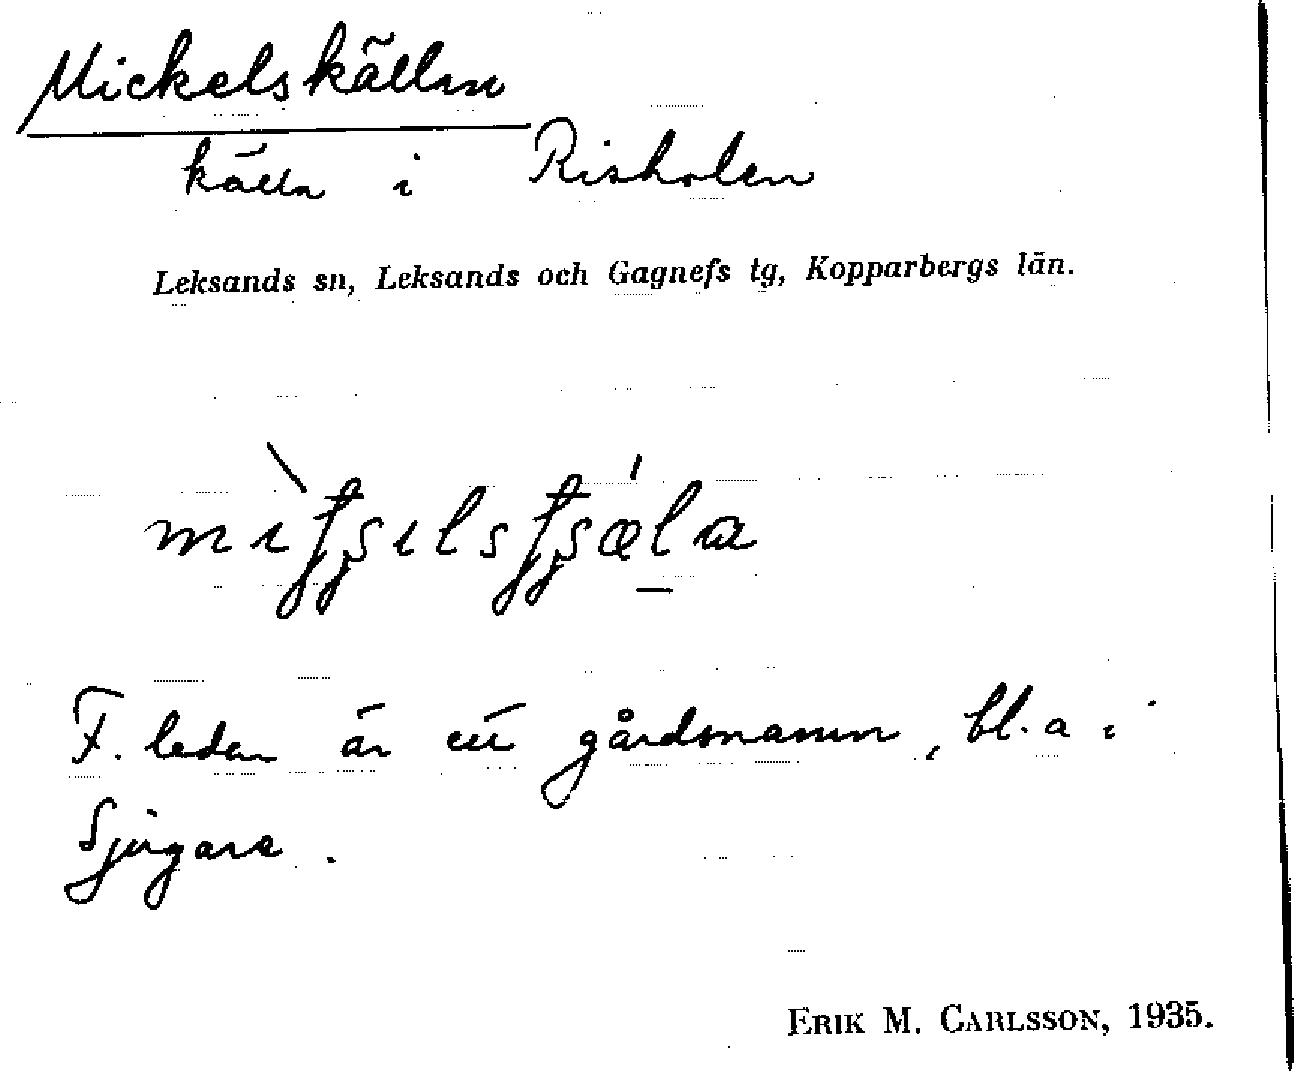 Mickelskällan
källa i Risholen
Leksands sn, Leksands och Gagnefs tg, Kopparbergs län.
F. leden är ett gårdsnamn, bl.a i
Sjugare.
ERIK M. CARLSSON, 1935.